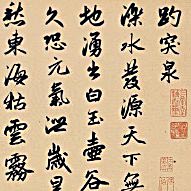 趵突泉
濼水發源天下無
地湧出白玉壺谷
久恐元氣洩歲
愁東海枯雲霧